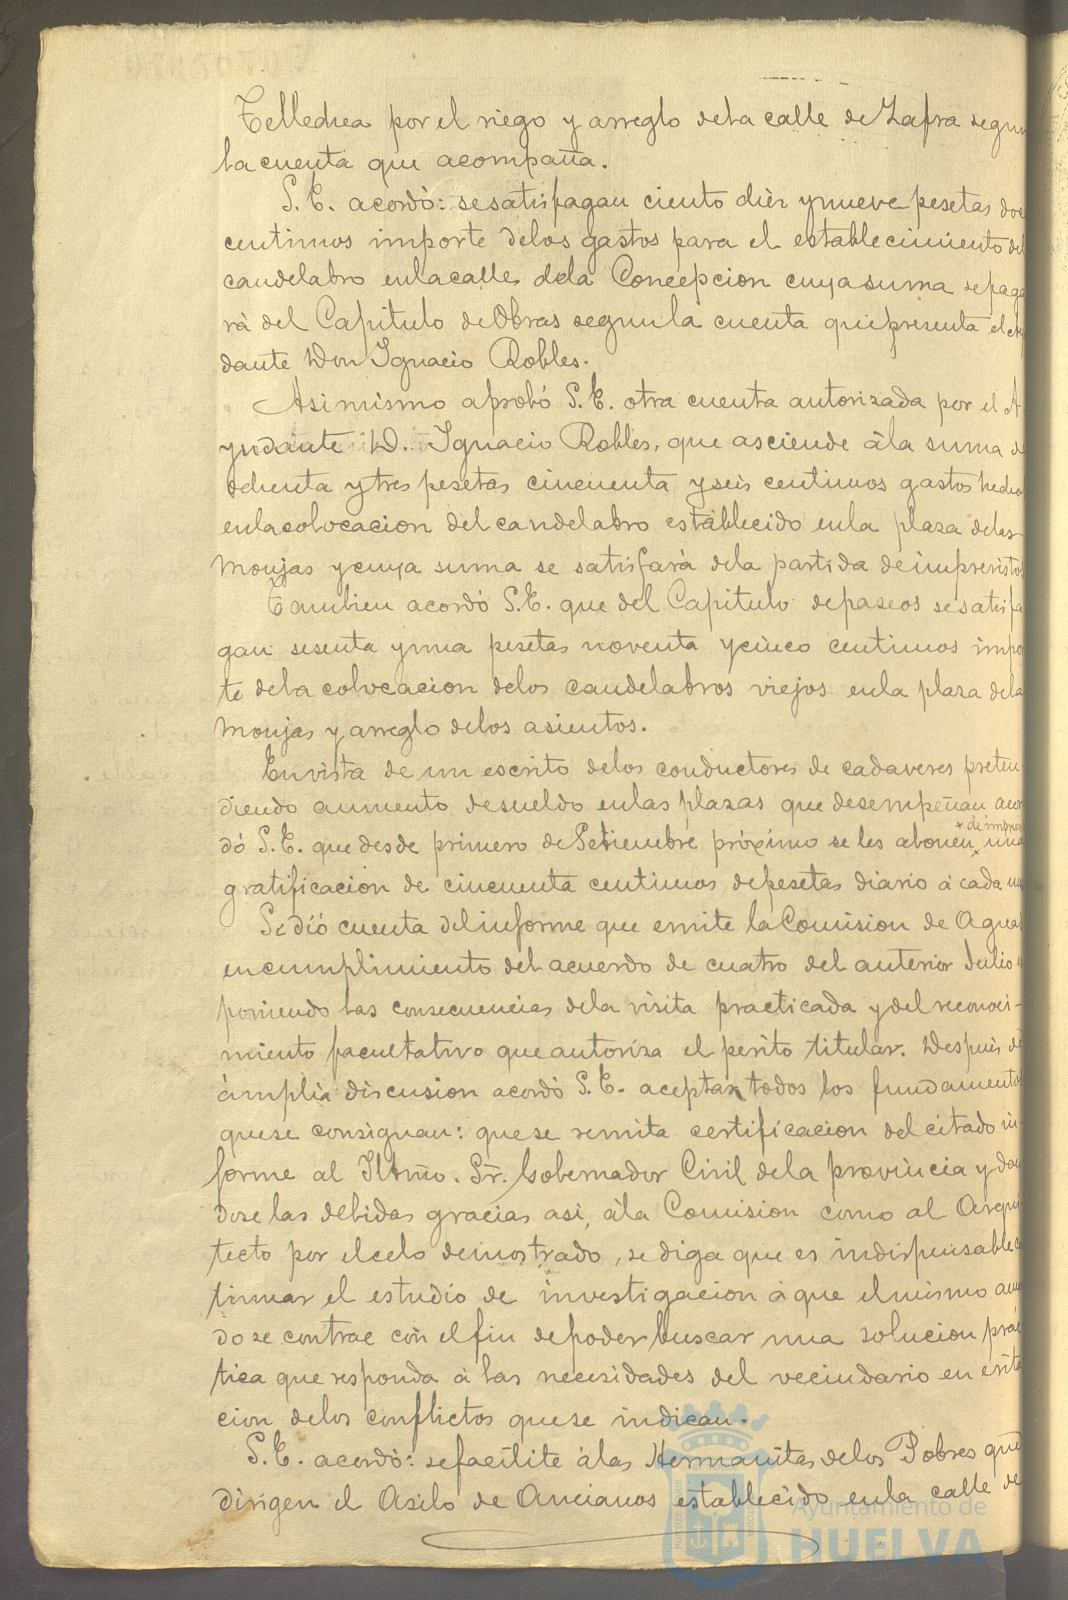 Telledua por el riego y arreglo dela calle de Zafra segun
la cuenta que acompaña.
S. E. acordó: sesatisfagan ciento diez ynueve pesetas doce
centimos importe delos gastos para el establecimiento del
candelabro enlacalle dela Concepcion cuyasuma sepaga
rá del Capitulo deObras segunla cuenta quepresenta el Ayu
dante Don Ignacio Robles.
Asimismo aprobó S. E. otra cuenta autorizada por el A-
yudante D. Ignacio Robles, que asciende ála suma de
ochenta ytres pesetas cincuenta yseis centimos gastos hechos
enlacolocacion del candelabro establecido enla plaza delas
Monjas ycuya suma se satisfará dela partida deimprevistos
Tambien acordó S. E. que del Capitulo depaseos sesatisfa
gan sesenta yuna pesetas noventa ycinco centimos impor
te dela colocacion delos candelabros viejos enla plaza delas
Monjas y arreglo delos asientos.
Envista de un escrito delos conductores de cadaveres preten-
diendo aumento desueldo enlas plazas que desempeñan acor
dó S. E. que desde primero de Setiembre próximo se les abonen una
gratificacion de cincuenta centimos depesetas diario á cada uno
Se dió cuenta delinforme que emite laComision de Aguas
encumplimiento del acuerdo de cuatro del anterior Julio
poniendo las consecuencias dela visita practicada ydel reconoci-
miento facultativo queautoriza el perito titular. Despues de
ámplia discusion acordó S. E. aceptar todos los fundamentos
quese consignan: quese remita certificacion del citado in-
forme al Iltmo. Sr. Gobernador Civil dela provincia y dan
dose las debidas gracias asi, ála Comision como al Arqui
tecto por elcelo demostrado, se diga que es indispensable con
tinuar el estudio de investigacion á que elmismo acuer
do se contrae con el fin depoder buscar una solucion prác
tica que responda á las necesidades del vecindario en evita
cion delos conflictos quese indican.
S. E. acordó: sefacilite álas Hermanitas delos Pobres que
dirigen el Asilo de Ancianos establecido enla calle de
Ayuntamiento de
HUELVA